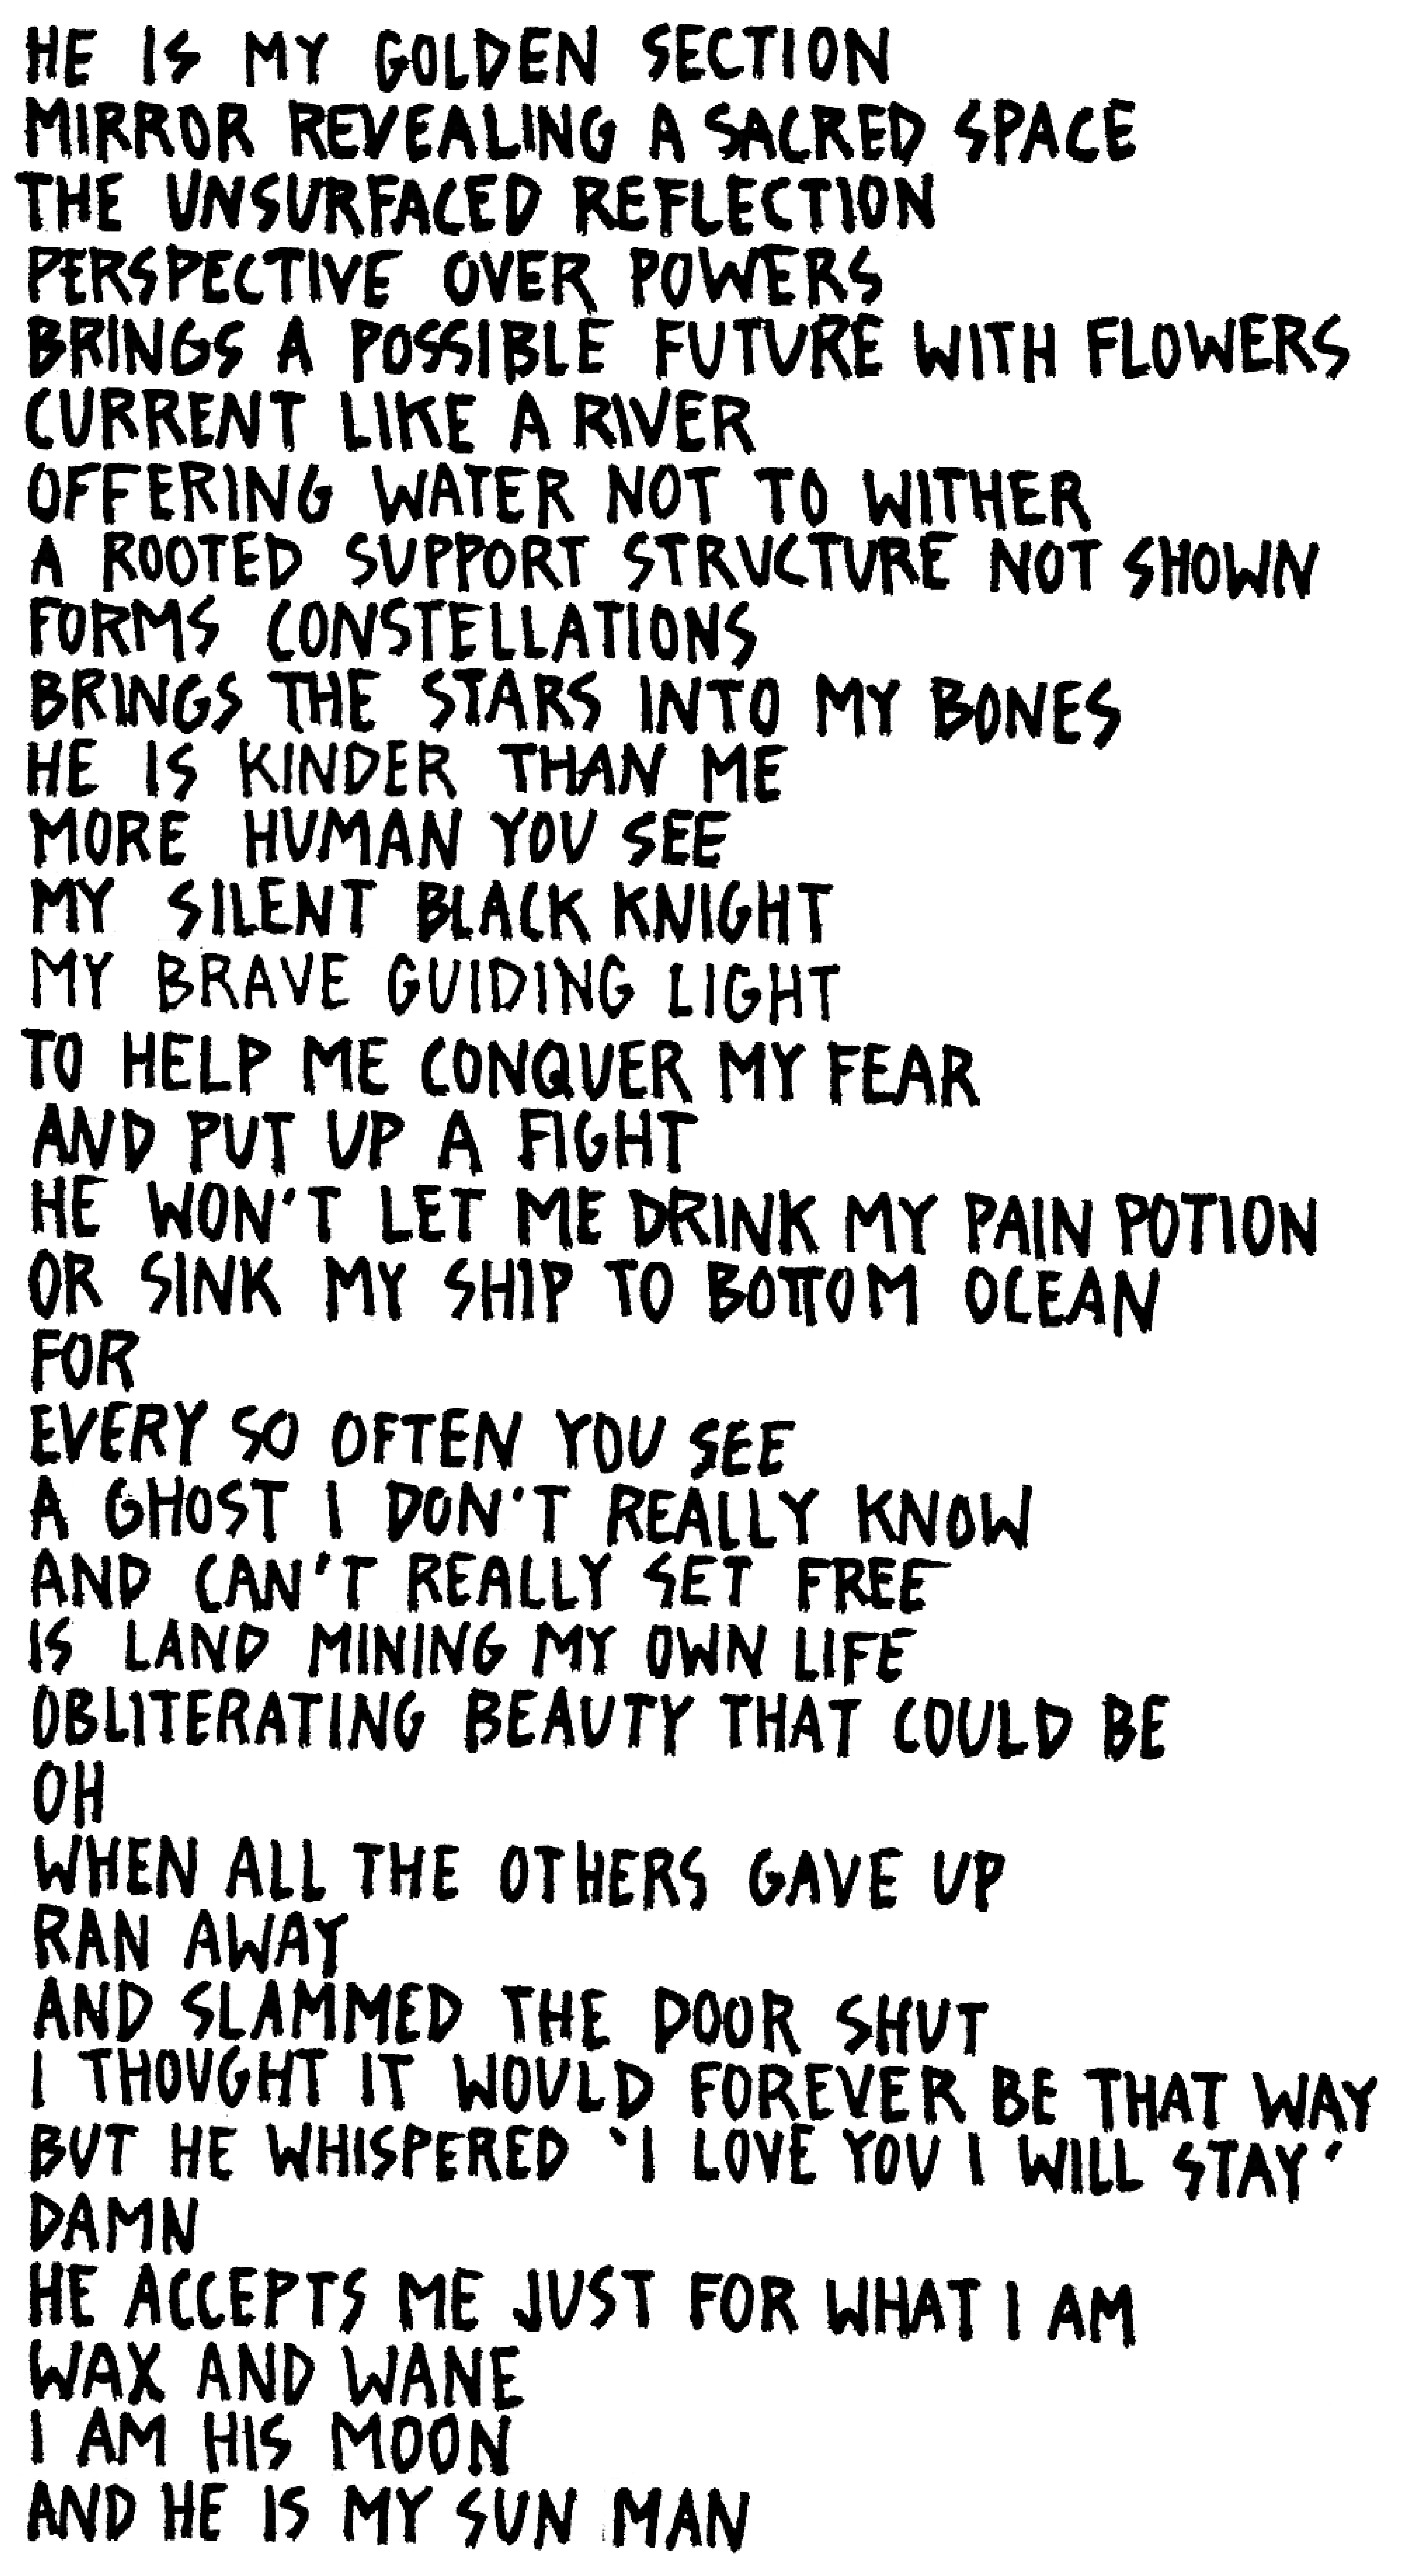 HE IS MY GOLDEN SECTION
MIRROR REVEALING A SACRED SPACE
THE UNSURFACED REFLECTION
PERSPECTIVE OVER POWERS
BRINGS A POSSIBLE FUTURE WITH FLOWERS
CURRENT LIKE A RIVER
OFFERING WATER NOT TO WITHER
A ROOTED SUPPORT STRUCTURE NOT SHOWN
FORMS CONSTELLATIONS
BRINGS THE STARS INTO MY BONES
HE IS KINDER THAN ME
MORE HUMAN YOU SEE
MY SILENT BLACK KNIGHT
MY BRAVE GUIDING LIGHT
TO HELP ME CONQUER MY FEAR
AND PUT UP A FIGHT
HE WON'T LET ME DRINK MY PAIN POTION
OR SINK MY SHIP TO BOTTOM OCEAN
FOR
EVERY SO OFTEN YOU SEE
A GHOST I DON'T REALLY KNOW
AND CAN'T REALLY SET FREE
IS LAND MINING MY OWN LIFE
OBLITERATING BEAUTY THAT COULD BE
OH
WHEN ALL THE OTHERS GAVE UP
RAN AWAY
AND SLAMMED THE DOOR SHUT
I THOUGHT IT WOULD FOREVER BE THAT WAY
BUT HE WHISPERED 'I LOVE YOU I WILL STAY'
DAMN
HE ACCEPTS ME JUST FOR WHAT I AM
WAX AND WANE
I AM HIS MOON
AND HE IS MY SUN MAN